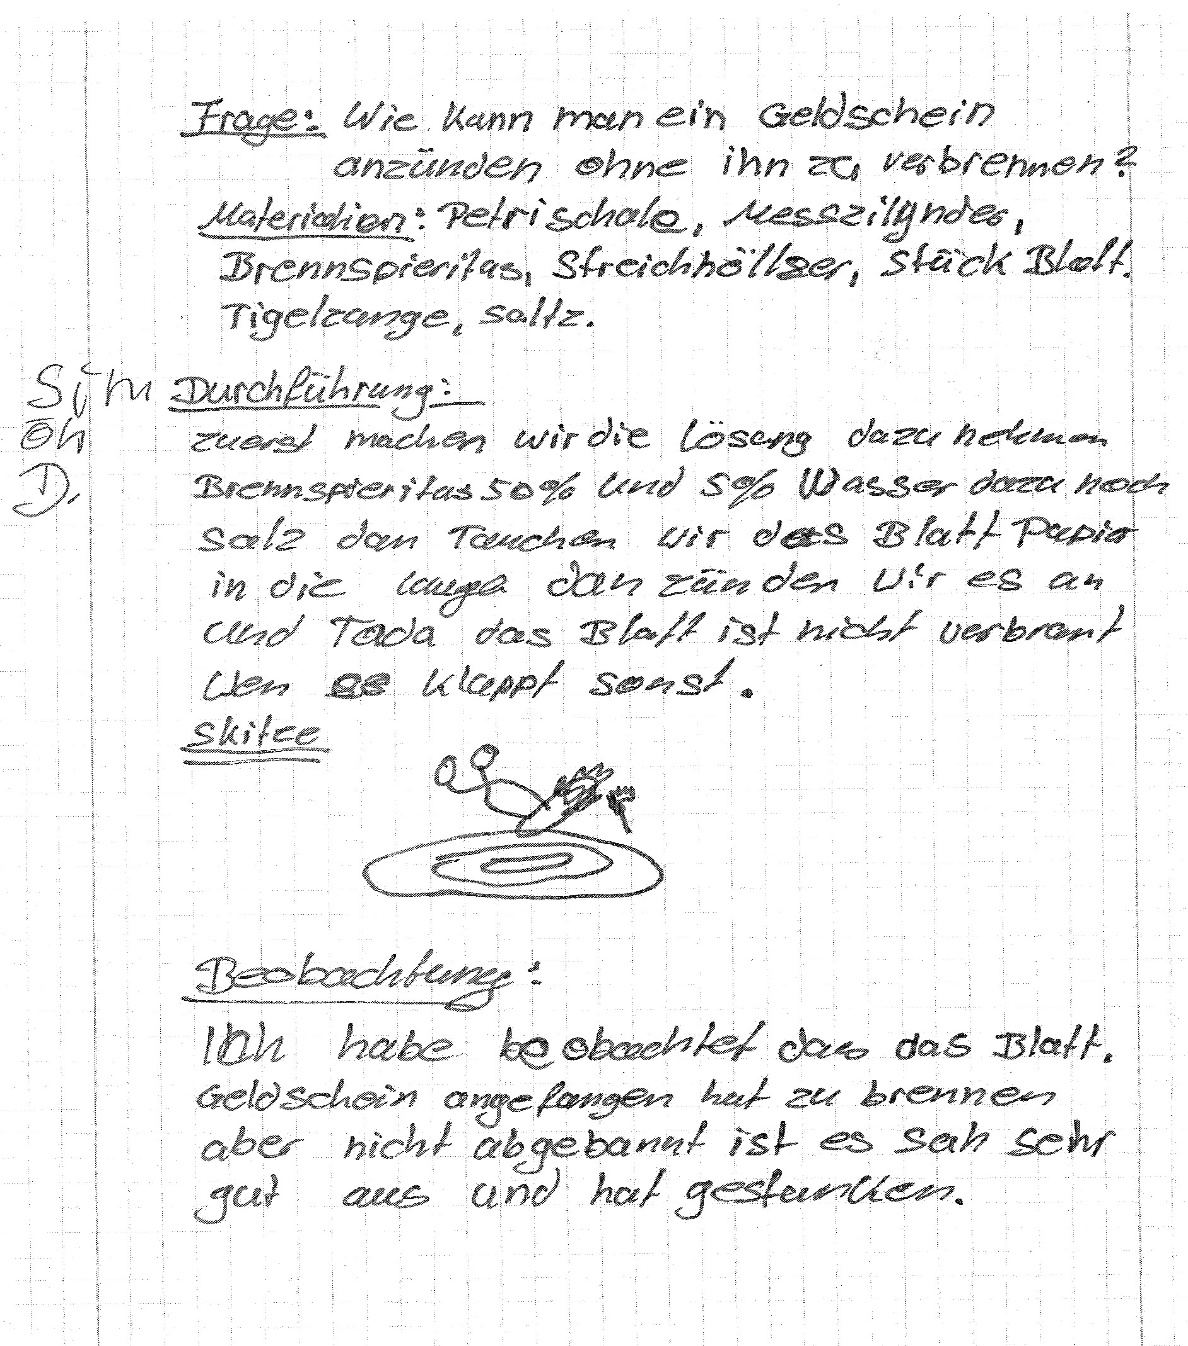 Frage: Wie kann man ein Geldschein
anzünden ohne ihn zu verbrennen?
Materialien: Petrischale, Messzilynder,
Brennspieritas, Streichhöllzer, Stück Blatt.
Tigelzange, saltz.
Durchführung:
zuerst machen wir die lösung dazu nehmen
Brennspieritas 50% und 5% Wasser dazu noch
salz dan Tauchen wir das Blatt Papier
in die lauge dan zünden wir es an
und Tada das Blatt ist nicht verbrant
wen es klappt sonst.
Skitze
Beobachtung:
Ich habe beobachtet das das Blatt.
Geldschein angefangen hat zu brennen
aber nicht abgebannt ist es sah sehr
gut aus und hat gestunken.